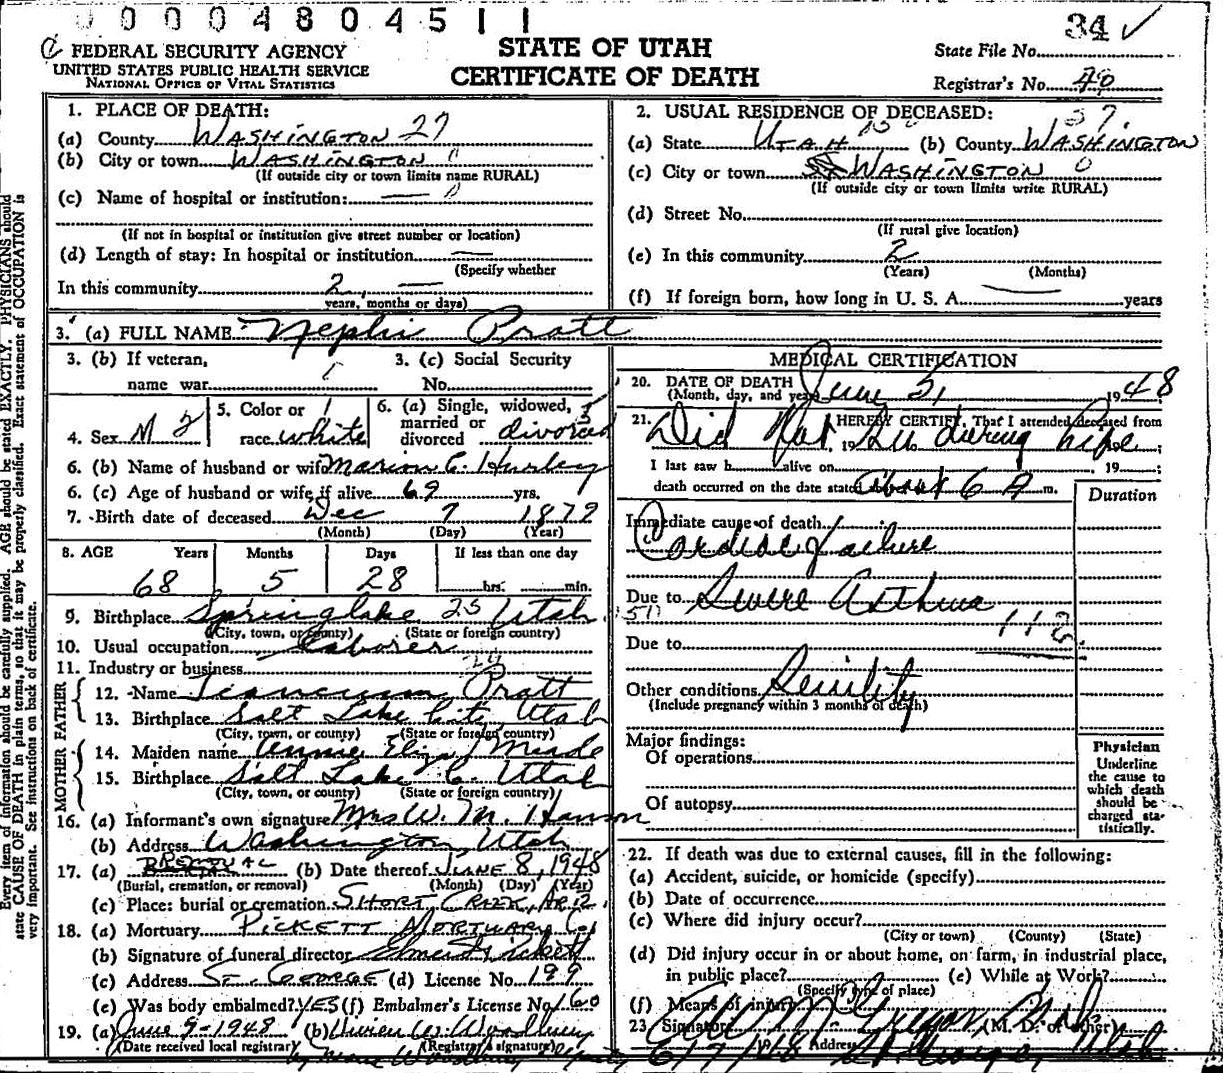 00004804511
34 ✓
FEDERAL SECURITY AGENCY
UNITED STATES PUBLIC HEALTH SERVICE
NATIONAL OFFICE OF VITAL STATISTICS
STATE OF UTAH
CERTIFICATE OF DEATH
State File No.
Registrar's No. 48
1. PLACE OF DEATH:
(a) County WASHINGTON 27
(b) City or town WASHINGTON 0
(If outside city or town limits name RURAL)
(c) Name of hospital or institution: — 0
(If not in hospital or institution give street number or location)
(d) Length of stay: In hospital or institution —
(Specify whether
In this community 2 —
years, months or days)
2. USUAL RESIDENCE OF DECEASED: 27
(a) State UTAH (b) County WASHINGTON
(c) City or town WASHINGTON 0
(If outside city or town limits write RURAL)
(d) Street No.
(If rural give location)
(e) In this community 2
(Years) (Months)
(f) If foreign born, how long in U. S. A. — years
3. (a) FULL NAME Nephi Pratt
3. (b) If veteran,
name war
3. (c) Social Security
No.
4. Sex M 2
5. Color or
race white
6. (a) Single, widowed,
married or
divorced divorced
6. (b) Name of husband or wife Marion C. Hurley
6. (c) Age of husband or wife, if alive 69 yrs.
7. Birth date of deceased Dec 7 1879
(Month) (Day) (Year)
8. AGE Years Months Days If less than one day
68 5 28 hrs. min.
9. Birthplace Springlake 25 Utah
(City, town, or county) (State or foreign country)
10. Usual occupation Laborer
11. Industry or business
FATHER
12. Name Teancum Pratt
13. Birthplace Salt Lake City Utah
(City, town, or county) (State or foreign country)
MOTHER
14. Maiden name Annie Eliza Meade
15. Birthplace Salt Lake C. Utah
(City, town, or county) (State or foreign country)
16. (a) Informant's own signature Mrs W. M. Hanson
(b) Address Washington, Utah
17. (a) (b) Date thereof JUNE 8, 1948
(Burial, cremation, or removal) (Month) (Day) (Year)
(c) Place: burial or cremation SHORT CREEK, ARIZ.
18. (a) Mortuary PICKETT MORTUARY
(b) Signature of funeral director Elmer Pickett
(c) Address ST. GEORGE (d) License No. 199
(e) Was body embalmed? YES (f) Embalmer's License No. 160
19. (a) June 9-1948 (b) Vivien W. Woodbury
(Date received local registrar) (Registrar's signature)
Woodbury Deputy
MEDICAL CERTIFICATION
20. DATE OF DEATH June 5, 1948
(Month, day, and year)
21. I HEREBY CERTIFY, That I attended deceased from
Did Not, 19 See during life
I last saw h alive on , 19 ;
death occurred on the date stated about 6 A m.
Duration
Immediate cause of death
Cardiac failure
Due to Severe Asthma
511
112
Due to
Other conditions Senility
(Include pregnancy within 3 months of death)
Major findings:
Of operations
Of autopsy
Physician
Underline
the cause to
which death
should be
charged sta-
tistically.
22. If death was due to external causes, fill in the following:
(a) Accident, suicide, or homicide (specify)
(b) Date of occurrence
(c) Where did injury occur?
(City or town) (County) (State)
(d) Did injury occur in or about home, on farm, in industrial place,
in public place? (e) While at Work?
(Specify type of place)
(f) Means of injury
23 Signature McGregor (M. D. or other)
6/7/48 Address St George, Utah
Every item of information should be carefully supplied. AGE should be stated EXACTLY. PHYSICIANS should
state CAUSE OF DEATH in plain terms, so that it may be properly classified. Exact statement of OCCUPATION is
very important. See instructions on back of certificate.